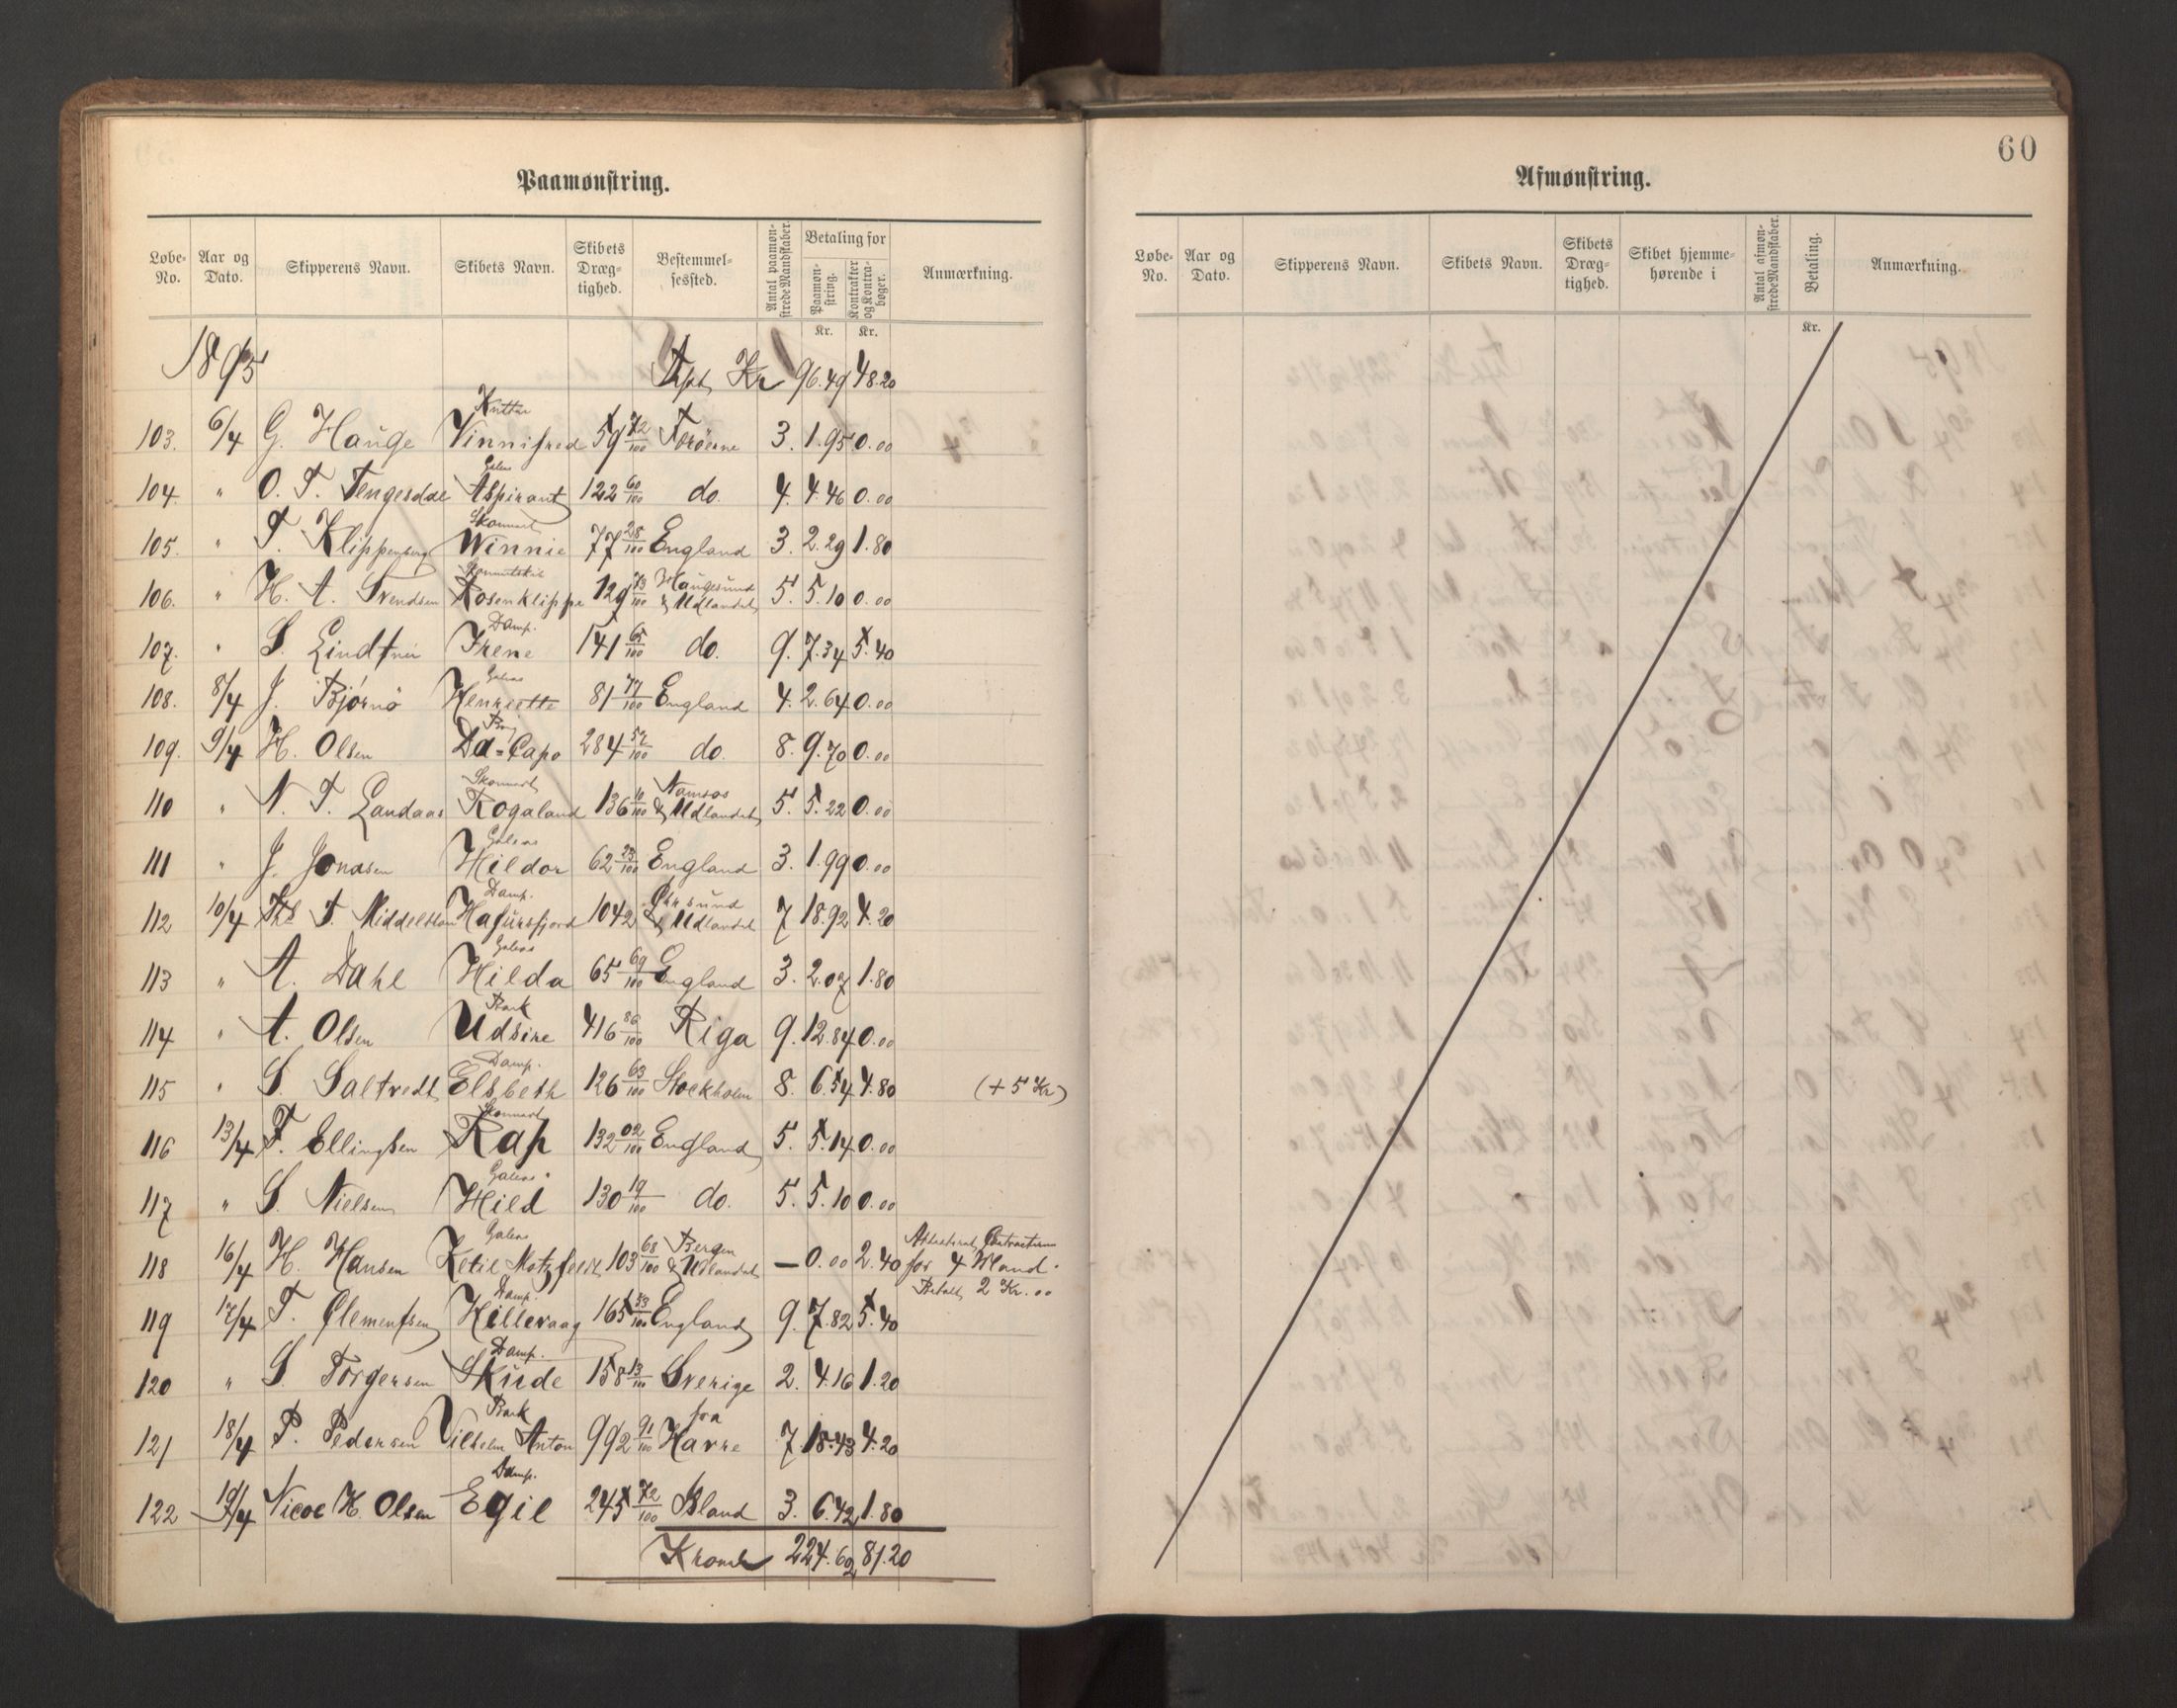 Paamønstring.
Løbe-No. Aar og Dato. Skipperens Navn. Skibets Navn. Skibets Dræg-tighed. Bestemmel-sessted. Antal paamøn-strede Mandskaber. Betaling for Paamøn-string. Kontrakter og Kontra-bøger. Anmærkning.
Kr. Kr.
1895 Kr 96.49 48.20
Kutter
103. 6/4 G. Hauge Vinnifred 59 72/100 Færøerne 3. 1.95 0.00
Galeas
104. " O. T. Tengesdal Aspirant 122 60/100 do. 4. 4.46 0.00
Skonnert
105. " T. Klippenberg Winnie 77 28/100 England 3. 2.29 1.80
106. " H. A. Svendsen Rosenklippe 129 73/100 Haugesund & Udlandet 5. 5.10 0.00
Damp.
107. " S. Lindtner Irene 141 65/100 do. 9. 7.34 5.40
Galeas
108. 8/4 J. Bjørnø Henriette 81 77/100 England 4. 2.64 0.00
Brig
109. 9/4 H. Olsen Da-Capo 284 57/100 do. 8. 9.70 0.00
Skonnert
110 " N. T. Landaas Rogaland 136 11/100 Namsos & Udlandet 5. 5.22 0.00
Galeas
111 " J. Jonasen Hildor 62 23/100 England 3. 1.99 0.00
Damp.
112 10/4 Ths T. Middelthon Hafursfjord 1042 Chrsund & Udlandet 7 18.92 4.20
Galeas
113 " A. Dahl Hilda 65 69/100 England 3. 2.07 1.80
Bark
114 " A. Olsen Udsire 416 86/100 Riga 9. 12.84 0.00
Damp.
115 " S. Saltvedt Elsbeth 126 63/100 Stockholm 8. 6.54 4.80 (+ 5 Kr)
Skonnert
116 13/4 F. Ellingsen Rap 132 02/100 England 5. 5.14 0.00
Galeas
117 " S. Nielsen Hild 130 19/100 do. 5. 5.10 0.00
Galeas
118 16/4 H. Hansen Ketil Motzfeldt 103 68/100 Bergen & Udlandet — 0.00 2.40 for 4 Mand. Betalt 2 Kr. 00
Damp.
119 17/4 T. Clementsen Hillevaag 165 33/100 England 9. 7.82 5.40
Damp.
120 " S. Torgersen Skude 158 13/100 Sverige 2. 4.16 1.20
Bark
121 18/4 P. Pedersen Vilhelm Anton 992 91/100 fra Havre 7. 18.43 4.20
Damp.
122 19/4 Nicoc H. Olsen Egil 245 72/100 Island 3. 6.42 1.80
Kroner 224.62 81.20
60
Afmønstring.
Løbe-No. Aar og Dato. Skipperens Navn. Skibets Navn. Skibets Dræg-tighed. Skibet hjemme-hørende i Antal afmøn-strede Mandskaber. Betaling. Anmærkning.
Kr.